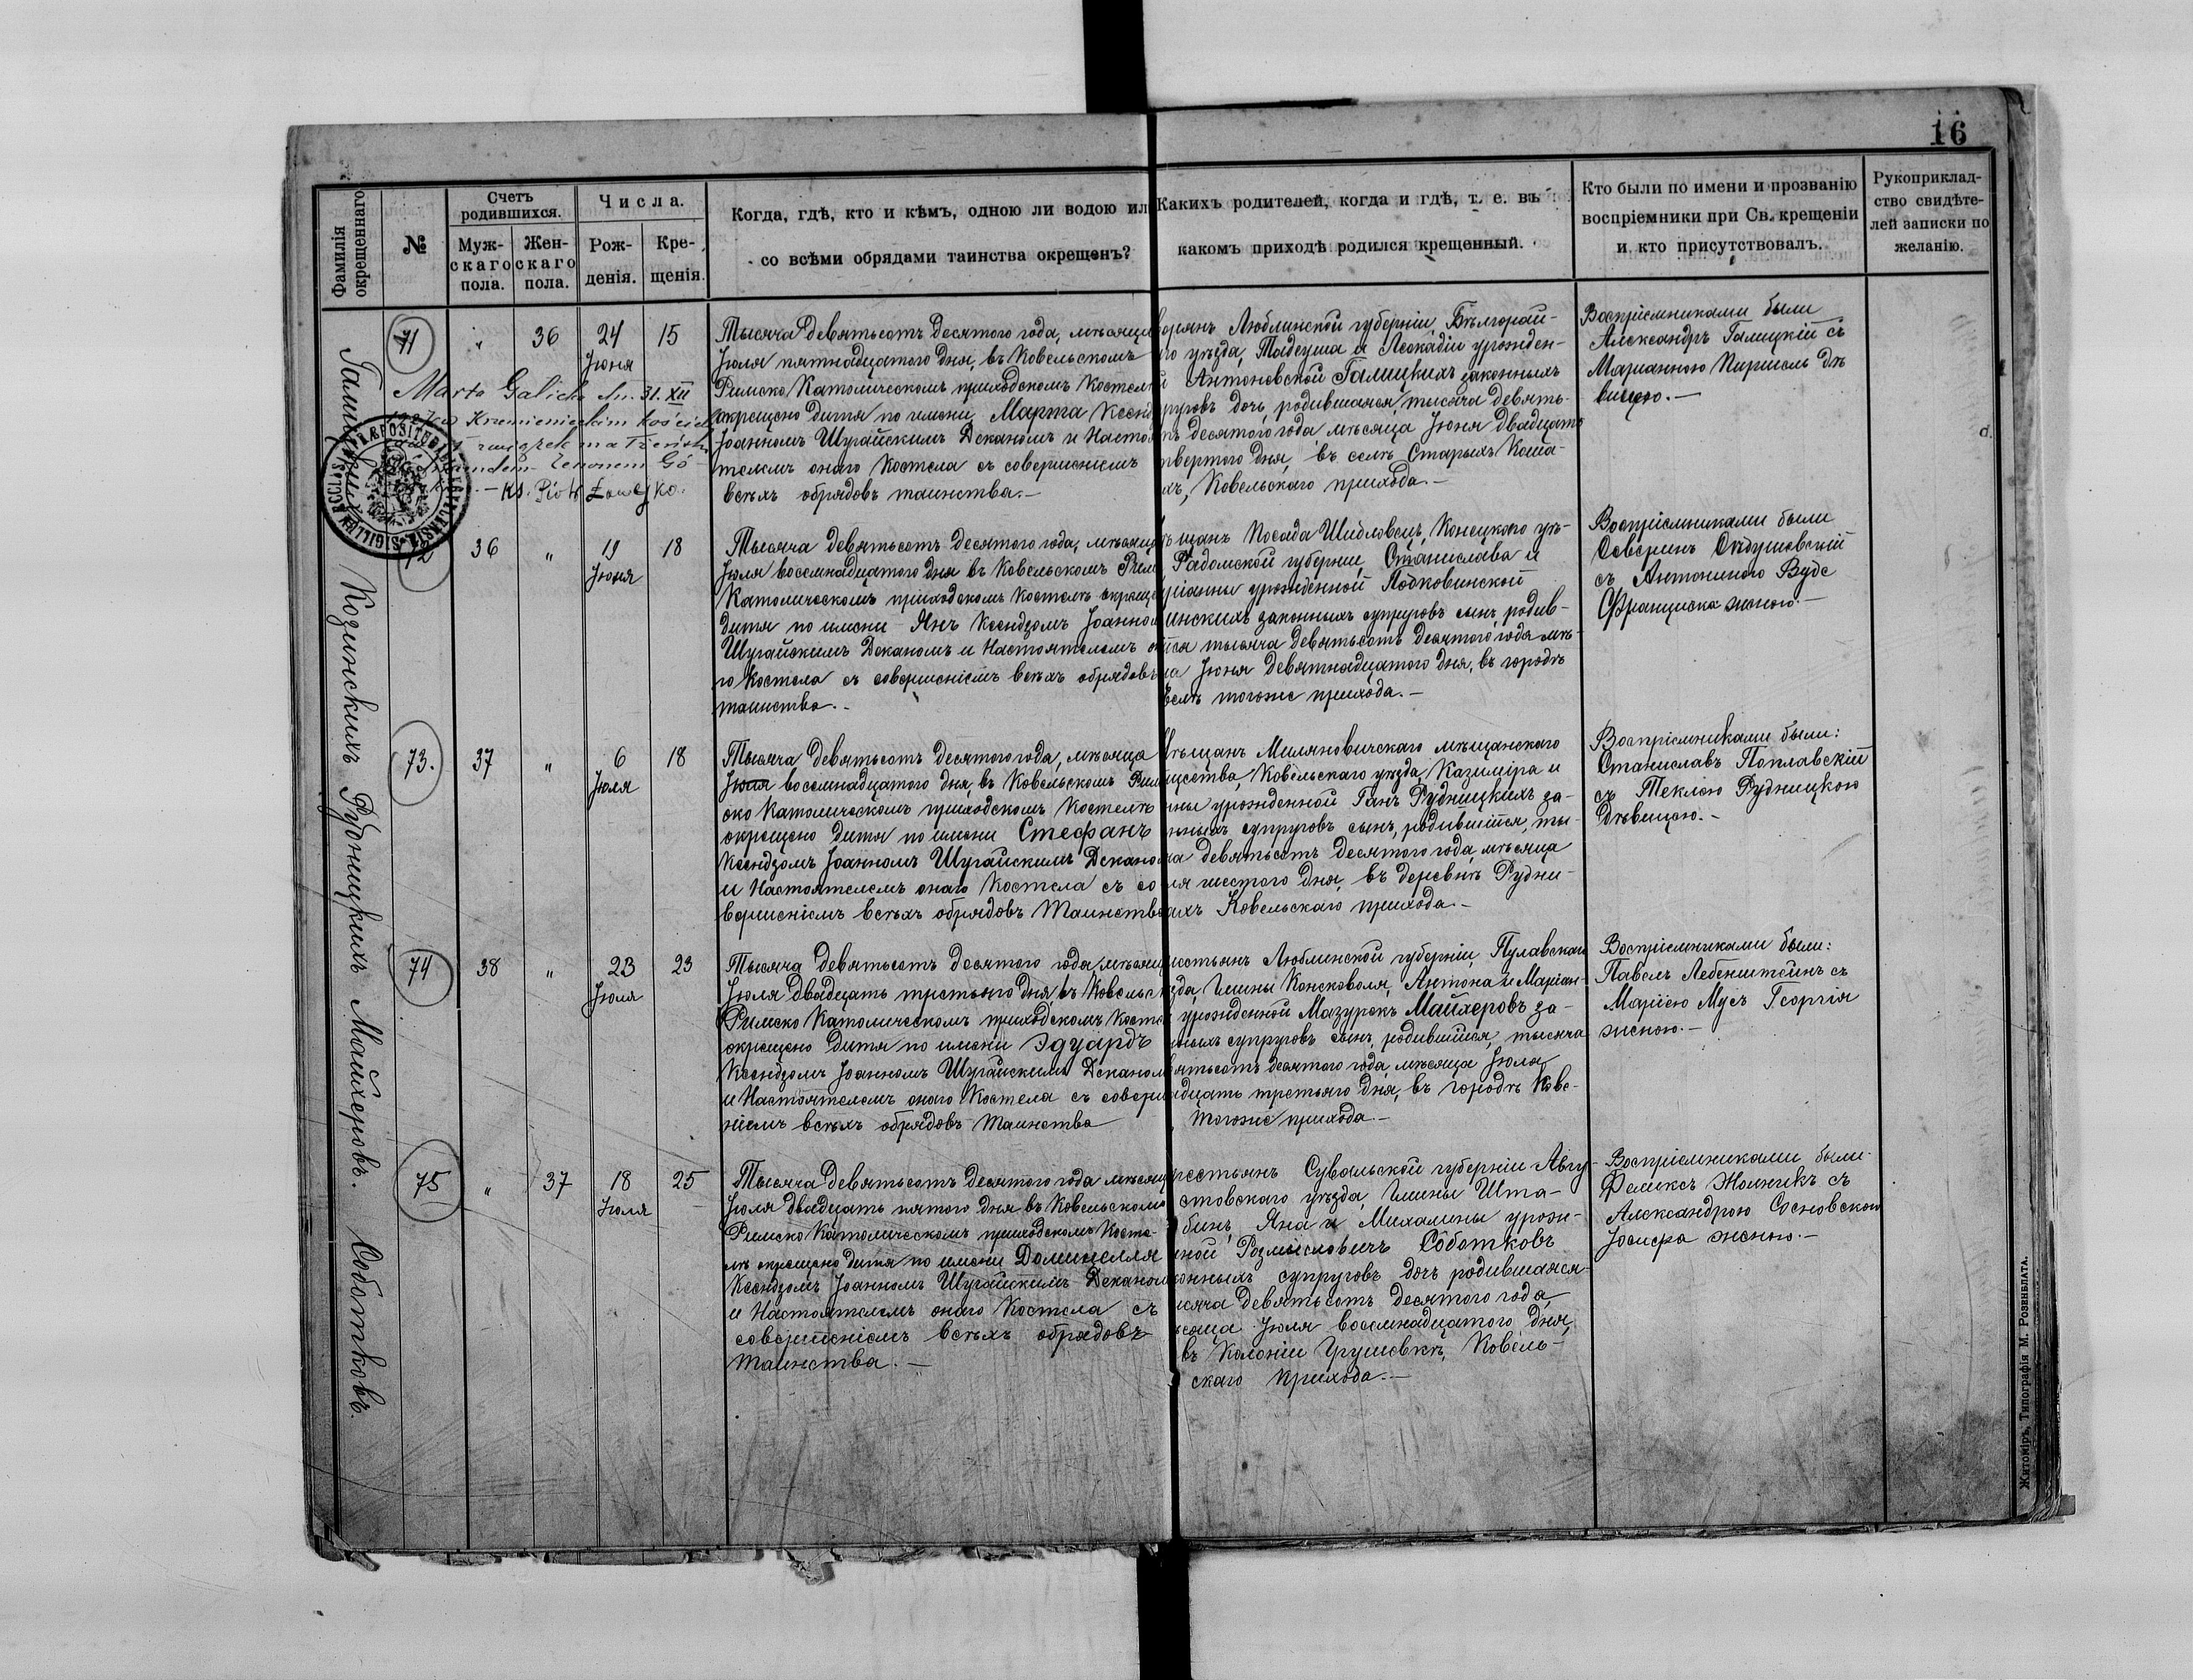 16
Фамилія окрещеннаго.
№
Счетъ родившихся.
Муж-скаго пола.
Жен-скаго пола.
Числа.
Рож-денія.
Кре-щенія.
Когда, гдѣ, кто и кѣмъ, одною ли водою ил
со всѣми обрядами таинства окрещенъ?
Какихъ родителей, когда и гдѣ, т. е. въ
какомъ приходѣ родился крещенный.
Кто были по имени и прозванію
воспріемники при Св. крещеніи
и кто присутствовалъ.
Рукоприклад-
ство свидѣте-
лей записки по
желанію.
71
"
36
24
Іюня
15
Marta Galicka dn. 31. XII
Krzemienieckim kościele
związek małżeński
Zenonem Gó-
ks. Piotr
Тысяча девятьсотъ десятого года, мѣсяца
Іюля пятнадцатого дня, въ Ковельскомъ
Римско Католическомъ приходскомъ Костелѣ
окрещено дитя по имени Марта Ксенд
Іоанномъ Шугайскимъ Деканомъ и Настоя
телемъ онаго Костела съ совершеніемъ
всѣхъ обрядовъ таинства.—
ворянъ Люблинской губерніи, Бѣлгорай-
го уѣзда, Тадеуша и Леокадіи урожден-
й Антоновской Галицкихъ законныхъ
пруговъ дочь, родившаяся тысяча девять-
тъ десятого года, мѣсяца Іюня двадцать
твертого дня, въ селѣ Старыхъ Коша-
хъ, Ковельскаго прихода.—
Воспріемниками были
Александръ Галицкій съ
Маріанною Пиршель дѣ
вицею.—
Галицкихъ
72
36
"
19
Іюня
18
Тысяча девятьсотъ десятого года, мѣсяца
Іюля восемнадцатого дня въ Ковельскомъ Рим
Католическомъ приходскомъ Костелѣ окреще
дитя по имени Янъ Ксендзомъ Іоанном
Шугайскимъ Деканомъ и Настоятелемъ он
го Костела съ совершеніемъ всѣхъ обрядовъ
таинства.-
ѣщанъ Посада Шидловецъ, Конецкаго уѣ-
Радомской губерніи, Станислава и
ріанны урожденной Подковинской
инскихъ законныхъ супруговъ сынъ, родив-
йся тысяча девятьсотъ десятого года мѣ-
ца Іюня девятнадцатого дня, въ городѣ
велѣ тогоже прихода.—
Воспріемниками были
Северинъ
съ Антониною Вуде
Франциска женою.—
Козинскихъ
73.
37
"
6
Іюля
18
Тысяча девятьсотъ десятого года, мѣсяца
Іюля восемнадцатого дня, въ Ковельскомъ Рим
ско Католическомъ приходскомъ Костелѣ
окрещено дитя по имени Стефанъ
Ксендзомъ Іоанномъ Шугайскимъ Декано
и Настоятелемъ онаго Костела съ со
вершеніемъ всѣхъ обрядовъ Таинства
ѣщанъ Миляновичскаго мѣщанскаго
щества, Ковельскаго уѣзда, Казиміра и
нны урожденной Ганъ Рудницкихъ за-
нныхъ супруговъ сынъ, родившійся, ты-
ча девятьсотъ десятого года, мѣсяца
ля шестого дня, въ деревнѣ Рудни-
ахъ Ковельскаго прихода.—
Воспріемниками были:
Станиславъ Поплавскій
съ Теклею Рудницкою
дѣвицею.-
Рудницкихъ
74
38
"
23
Іюля
23
Тысяча девятьсотъ десятого года, мѣсяц
Іюля двадцать третьяго дня, въ Ковельск
Римско Католическомъ приходскомъ Косте
окрещено дитя по имени Эдуардъ
Ксендзомъ Іоанномъ Шугайскимъ Деканом
и Настоятелемъ онаго Костела съ соверш
ніемъ всѣхъ обрядовъ Таинства
рестьянъ Люблинской губерніи, Пулавскаго
зда, Гмины Консковоля, Антона и Маріан-
урожденной Мазурекъ Майхеровъ за-
нныхъ супруговъ сынъ, родившійся, тысяча
вятьсотъ десятого года, мѣсяца Іюля
адцать третьяго дня, въ городѣ Кове-
тогоже прихода.—
Воспріемниками были:
Павелъ Лебенштейнъ съ
Маріею Мусъ Георгія
женою.—
Майхеровъ.
75
"
37
18
Іюля
25
Тысяча девятьсотъ десятого года мѣсяц
Іюля двадцать пятого дня въ Ковельскомъ
Римско Католическомъ приходскомъ Косте-
лѣ окрещено дитя по имени Доминелля
Ксендзомъ Іоанномъ Шугайскимъ Деканом
и Настоятелемъ онаго Костела съ
совершеніемъ всѣхъ обрядовъ
Таинства.—
рестьянъ Сувальской губерніи Авгу-
стовскаго уѣзда, Гмины Шта-
бинъ, Яна и Михалины урож-
ной Розмысловичъ Соботковъ
конныхъ супруговъ дочь родившаяся
ысяча девятьсотъ десятого года,
ѣсяца Іюля восемнадцатого дня,
въ Колоніи Угушевкѣ, Ковель-
скаго прихода.—
Воспріемниками были
Феликсъ Жолникъ съ
Александрою Сосновскою
Іосифа женою.—
Соботковъ.
Житоміръ, Типографія М. Розенблата.